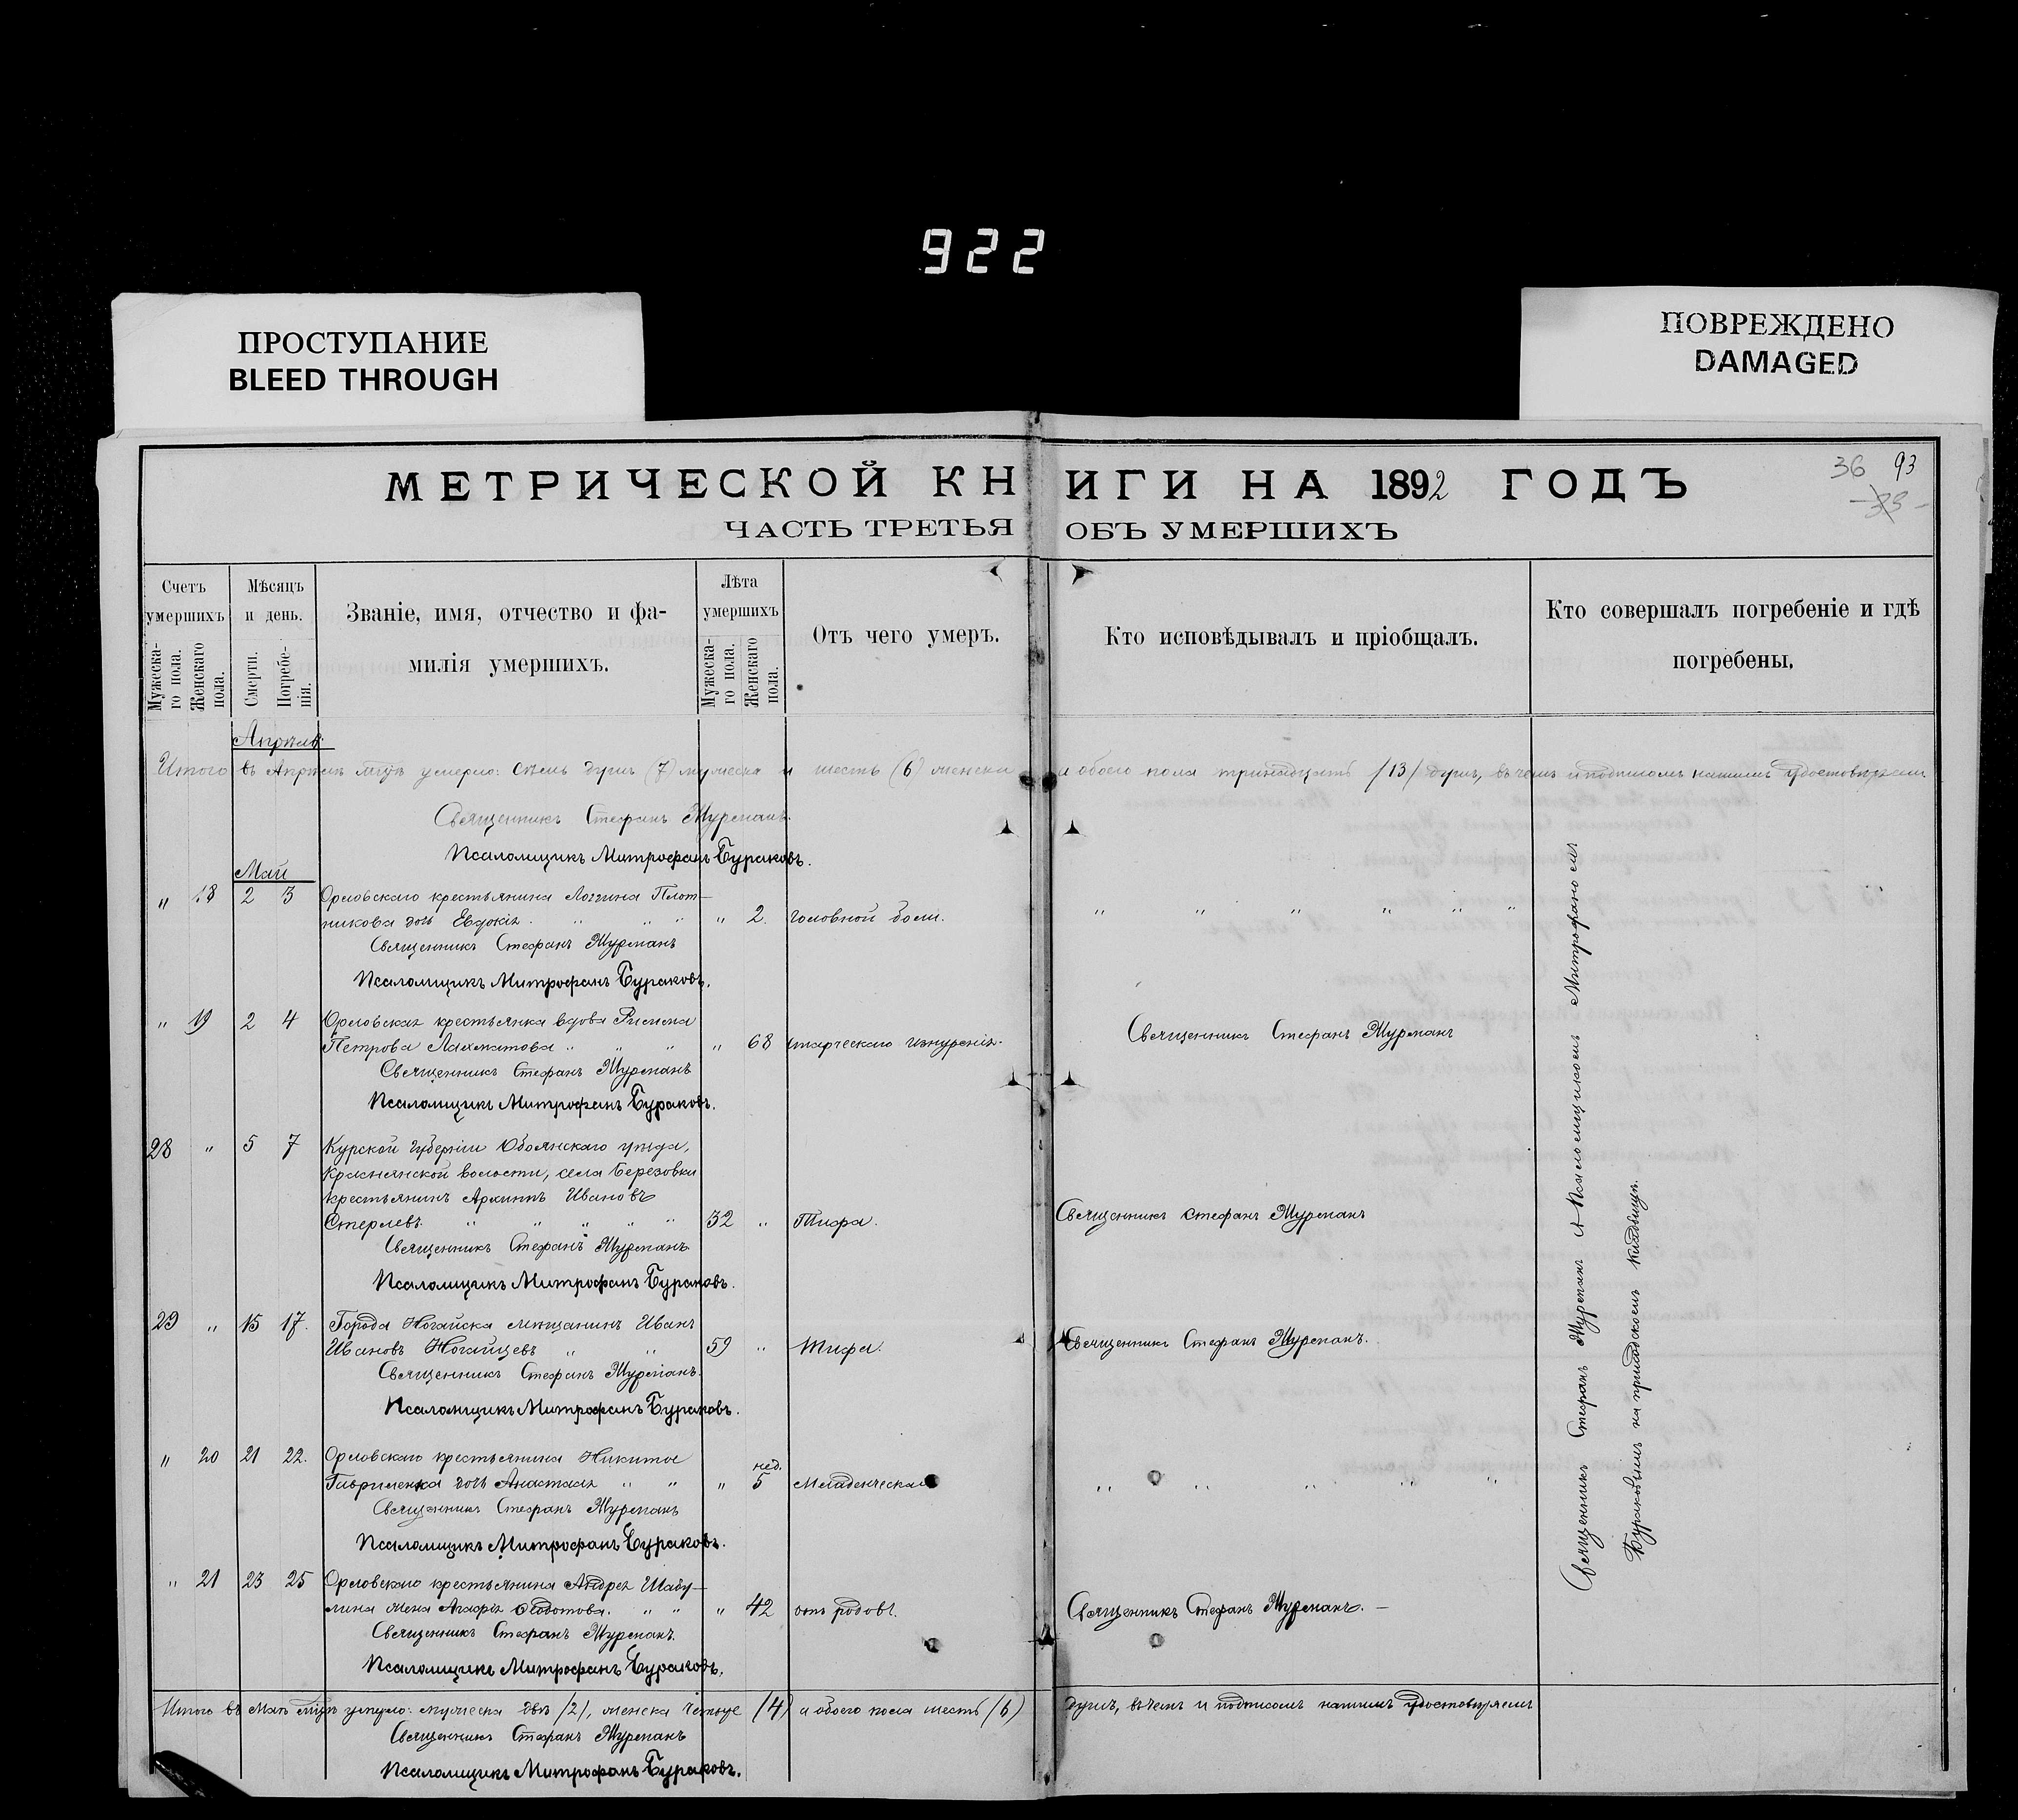 922
ПРОСТУПАНИЕ
BLEED THROUGH
ПОВРЕЖДЕНО
DAMAGED
МЕТРИЧЕСКОЙ КНИГИ НА 1892 ГОДЪ
36 93
ЧАСТЬ ТРЕТЬЯ ОБЪ УМЕРШИХЪ
Счетъ умершихъ
Мужеска-го пола.
Женскаго пола.
Мѣсяцъ и день.
Смерти.
Погребе-нія.
Званіе, имя, отчество и фа-
милія умершихъ.
Лѣта умершихъ
Мужеска-го пола.
Женскаго пола.
Отъ чего умеръ.
Кто исповѣдывалъ и пріобщалъ.
Кто совершалъ погребеніе и гдѣ
погребены.
Апрѣль
Итого въ Апрѣлѣ мцѣ умерло: семь душъ (7) мужеска и шесть (6) женска и обоего пола тринадцать /13/ душъ, въ чемъ и подписомъ нашимъ удостовѣряемъ
Священникъ Стефанъ Журманъ.
Псаломщикъ Митрофанъ Бураковъ.
Май
" 18 2 3 Орловскаго крестьянина Логгина Плот-
никова дочь Евдокія " " " " 2. головной боли. " " " " " "
Священникъ Стефанъ Журманъ
Псаломщикъ Митрофанъ Бураковъ.
" 19 2 4 Орловская крестьянка вдова
Петрова " " " " 68 старческаго изнуренія. Священникъ Стефанъ Журманъ
Священникъ Стефанъ Журманъ
Псаломщикъ Митрофанъ Бураковъ.
28 " 5 7 Курской губерніи Обоянскаго уѣзда,
Краснянской волости, села Березовки
крестьянинъ Ивановъ
" " " " " 32 " Тифа. Священникъ Стефанъ Журманъ
Священникъ Стефанъ Журманъ
Псаломщикъ Митрофанъ Бураковъ.
29 " 15 17. Города Ногайска мѣщанинъ Иванъ
Ивановъ Ногайцевъ " " 59 " Тифа. Священникъ Стефанъ Журманъ.
Священникъ Стефанъ Журманъ.
Псаломщикъ Митрофанъ Бураковъ.
" 20 21 22. Орловскаго крестьянина Никиты
нед.
Гавриленка дочь Анастасія " " " 5 Младенческая " " " " "
Священникъ Стефанъ Журманъ
Псаломщикъ Митрофанъ Бураковъ.
" 21 23 25 Орловскаго крестьянина Андрея Шабу-
лина жена Агафія Ѳедотова. " " " 42 отъ родовъ. Священникъ Стефанъ Журманъ. –
Священникъ Стефанъ Журманъ.
Псаломщикъ Митрофанъ Бураковъ.
Итого въ Маѣ мцѣ умерло: мужеска двѣ /2/, женска четыре (4) и обоего пола шесть (6) душъ, въ чемъ и подписомъ нашимъ удостовѣряемъ
Священникъ Стефанъ Журманъ
Псаломщикъ Митрофанъ Бураковъ.
Священникъ Стефанъ Журманъ съ Псаломщикомъ Митрофаномъ
Бураковымъ на приходскомъ кладбищѣ.